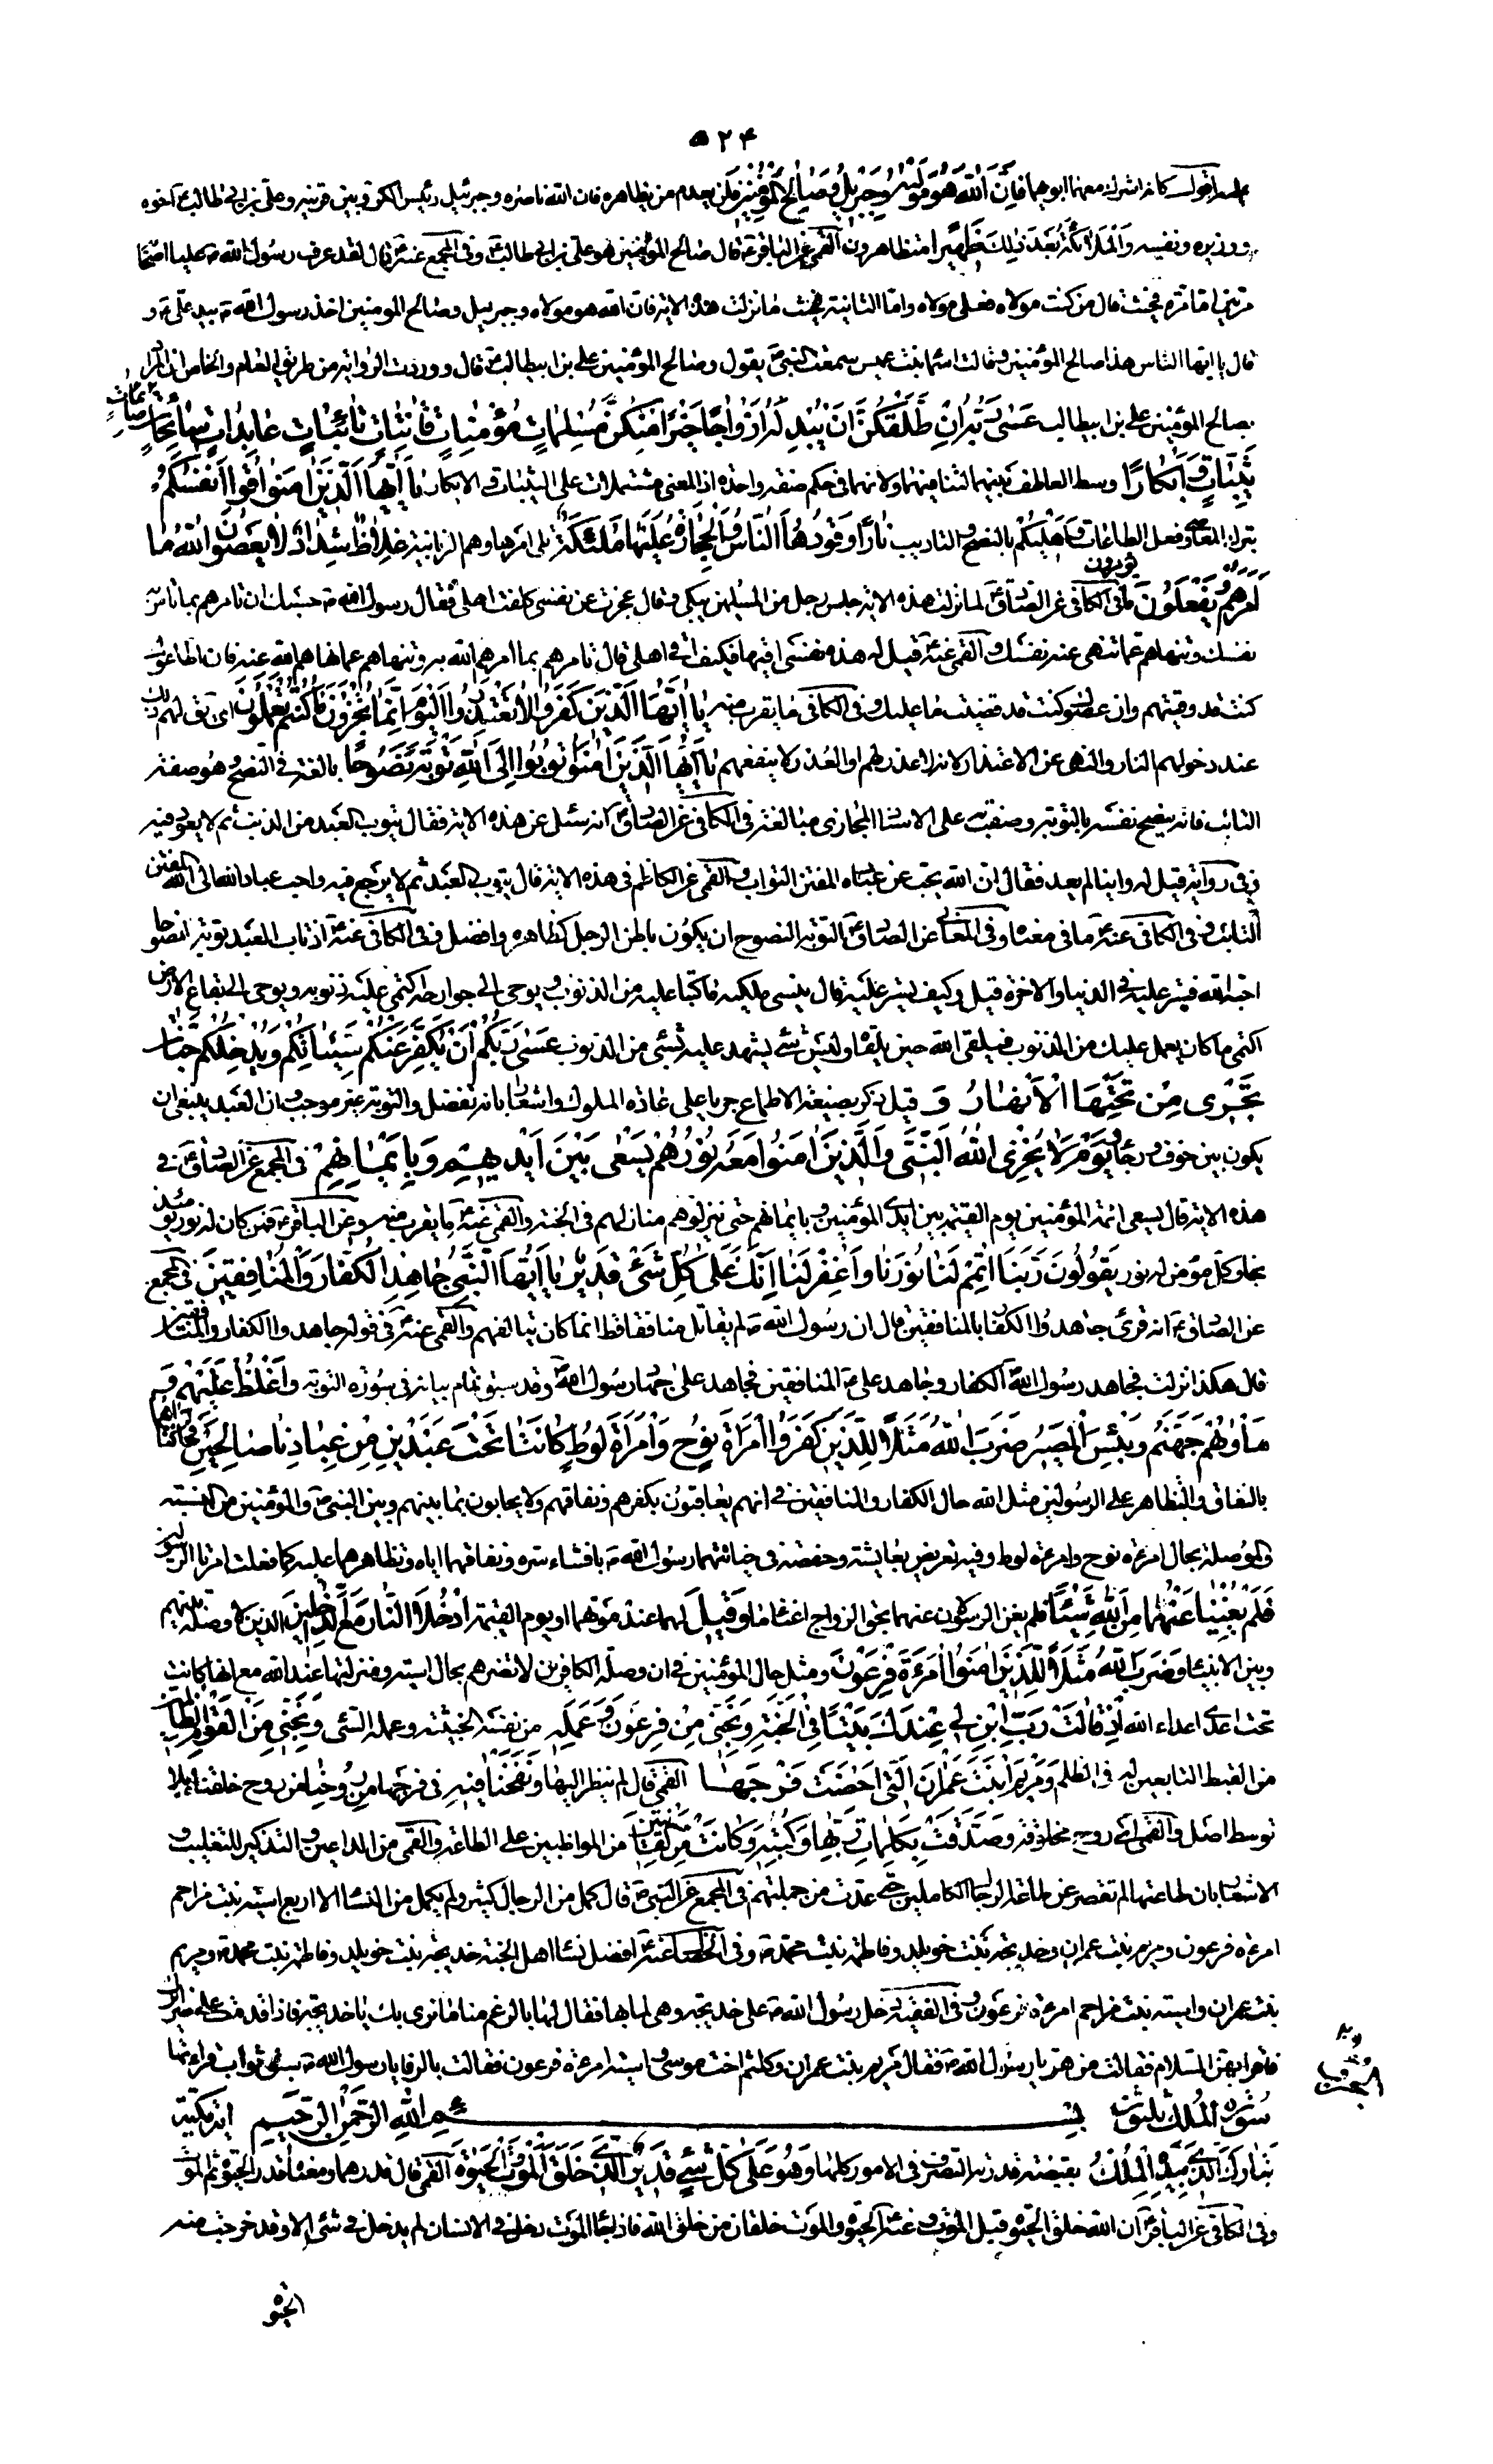 ۵۲۴
فَاِنَّ اللّٰهَ هُوَ مَوْلٰيهُ وَجِبْرِيلُ وَصَالِحُ الْمُؤْمِنِينَ فلن يعدم من يظاهره فان الله ناصره وجبرئيل رئيس الكروبيين قرينه وعلى بن ابي طالب ع اخوه
ووزيره ونفسه وَالْمَلٰٓئِكَةُ بَعْدَ ذٰلِكَ ظَهِيرًا متظاهرون القمى عن الباقر ع قال صالح المؤمنين هو على بن ابي طالب ع وفي المجمع عنه ع قال لقد عرف رسول الله ص عليا ع اصحابه
مرتين اما مرة فحيث قال من كنت مولاه فعلى مولاه واما الثانية فحيث ما نزلت هذه الاية فان الله هو مولاه وجبريل وصالح المومنين اخذ رسول الله ص بيد علي ع و
قال يا ايها الناس هذا صالح المؤمنين وقالت اسما بنت عميس سمعت النبي ص يقول وصالح المؤمنين على بن ابيطالب ع قال ووردت الرواية من طريق العام والخاص ان المراد
بصالح المؤمنين على بن ابيطالب عَسٰى رَبُّهُ اِنْ طَلَّقَكُنَّ اَنْ يُبْدِلَهُ اَزْوَاجًا خَيْرًا مِنْكُنَّ مُسْلِمَاتٍ مُؤْمِنَاتٍ قَانِتَاتٍ تَائِبَاتٍ عَابِدَاتٍ سَائِحَاتٍ صائمات
ثَيِّبَاتٍ وَاَبْكَارًا وسط العاطف بينهما لتنافيهما ولانهما في حكم صفة واحدة اذ المعنى مشتملات على الثيبات والابكار يَا اَيُّهَا الَّذِينَ اٰمَنُوا قُوا اَنْفُسَكُمْ
بترك المعاصى وفعل الطاعات وَاَهْلِيكُمْ بالنصح والتاديب نَارًا وَقُودُهَا النَّاسُ وَالْحِجَارَةُ عَلَيْهَا مَلٰٓئِكَةٌ تلى امرها وهم الزبانية غِلَاظٌ شِدَادٌ لَا يَعْصُونَ اللّٰهَ مَا
اَمَرَهُمْ وَيَفْعَلُونَ مَا يُؤْمَرُونَ في الكافي عن الصادق ع لما نزلت هذه الاية جلس رجل من المسلمين يبكي وقال عجزت عن نفسى كلفت اهلى فقال رسول الله ص حسبك ان تامرهم بما تامر به
نفسك وتنهاهم عما تنهى عنه نفسك والقمى عنه ع قيل له هذه نفسى اقيها فكيف اقي اهلى قال تامرهم بما امرهم الله به وتنهاهم عما نهاهم الله عنه فان اطاعوك
كنت قد وقيتهم وان عصوك كنت قد قضيت ما عليك وفي الكافي ما يقرب منه يَا اَيُّهَا الَّذِينَ كَفَرُوا لَا تَعْتَذِرُوا الْيَوْمَ اِنَّمَا تُجْزَوْنَ مَا كُنْتُمْ تَعْمَلُونَ اى يقال لهم ذلك
عند دخولهم النار والنهى عن الاعتذار لانه لا عذر لهم او العذر لا ينفعهم يَا اَيُّهَا الَّذِينَ اٰمَنُوا تُوبُوا اِلَى اللّٰهِ تَوْبَةً نَصُوحًا بالغة في النصح وهو صفة
التائب فانه ينصح نفسه بالتوبة وصفت به على الاسناد المجازى مبالغة في الكافي عن الصادق ع انه سئل عن هذه الاية فقال يتوب العبد من الذنب ثم لا يعود فيه
وفي رواية قيل له واينا لم يعد فقال ان الله يحب من عباده المفتن التواب والقمى عن الكاظم في هذه الاية قال يتوب العبد ثم لا يرجع فيه واحب عباد الله الى الله المفتن
التائب وفي الكافي عنه ع ما في معناه وفي المعاني عن الصادق ع التوبة النصوح ان يكون باطن الرجل كظاهره وافضل وفي الكافي عنه ع اذا تاب العبد توبة نصوحا
احبه الله فستر عليه في الدنيا والاخرة قيل وكيف يستر عليه قال ينسى ملكيه ما كتبا عليه من الذنوب ويوحى الى جوارحه اكتمى عليه ذنوبه ويوحى الى بقاع الارض
اكتمى ما كان يعمل عليك من الذنوب فيلقى الله حين يلقاه وليس شئ يشهد عليه بشئ من الذنوب عَسٰى رَبُّكُمْ اَنْ يُكَفِّرَ عَنْكُمْ سَيِّئَاتِكُمْ وَيُدْخِلَكُمْ جَنَّاتٍ
تَجْرِى مِنْ تَحْتِهَا الْاَنْهَارُ وَ قيل ذكر بصيغة الاطماع جريا على عادة الملوك واشعارا بانه تفضل والتوبة غير موجب وان العبد ينبغى ان
يكون بين خوف ورجاء يَوْمَ لَا يُخْزِى اللّٰهُ النَّبِىَّ وَالَّذِينَ اٰمَنُوا مَعَهُ نُورُهُمْ يَسْعٰى بَيْنَ اَيْدِيهِمْ وَبِاَيْمَانِهِمْ في المجمع عن الصادق ع في
هذه الاية قال يسعى ائمة المؤمنين يوم القيمة بين ايدى المؤمنين وبايمانهم حتى ينزلوهم منازلهم في الجنة والقمى عنه ع ما يقرب منه وعن الباقر ع فمن كان له نور يومئذ
نجا وكل مؤمن له نور يَقُولُونَ رَبَّنَا اَتْمِمْ لَنَا نُورَنَا وَاغْفِرْ لَنَا اِنَّكَ عَلٰى كُلِّ شَىْءٍ قَدِيرٌ يَا اَيُّهَا النَّبِىُّ جَاهِدِ الْكُفَّارَ وَالْمُنَافِقِينَ في المجمع
عن الصادق ع انه قرئ جاهدوا الكفار بالمنافقين قال ان رسول الله ص لم يقاتل منافقا قط انما كان يتالفهم والقمى عنه ع في قوله جاهدوا الكفار والمنافقين
قال هكذا نزلت فجاهد رسول الله الكفار وجاهد على ع المنافقين فجاهد على جهاد رسول الله ص وقد سبق تمام بيانه في سورة التوبة وَاغْلُظْ عَلَيْهِمْ وَ
مَاْوٰيهُمْ جَهَنَّمُ وَبِئْسَ الْمَصِيرُ ضَرَبَ اللّٰهُ مَثَلًا لِلَّذِينَ كَفَرُوا امْرَاَةَ نُوحٍ وَامْرَاَةَ لُوطٍ كَانَتَا تَحْتَ عَبْدَيْنِ مِنْ عِبَادِنَا صَالِحَيْنِ فَخَانَتَاهُمَا
بالنفاق والتظاهر على الرسولين مثل الله حال الكفار والمنافقين في انهم يعاقبون بكفرهم ونفاقهم ولا يحابون بما بينهم وبين النبي ص والمؤمنين من النسبة
والوصلة بحال امرءة نوح وامرءة لوط وفيه تعريض بعايشة وحفصة في خيانتهما رسول الله ص بافشاء سره ونفاقهما اياه وتظاهرهما عليه كما فعلت امراتا الرسولين
فَلَمْ يُغْنِيَا عَنْهُمَا مِنَ اللّٰهِ شَيْئًا فلم يغن الرسولان عنهما بحق الزواج اغناء ما وَقِيلَ لهما عند موتهما او يوم القيمة ادْخُلَا النَّارَ مَعَ الدَّاخِلِينَ الذين لا وصلة بينهم
وبين الانبياء وَضَرَبَ اللّٰهُ مَثَلًا لِلَّذِينَ اٰمَنُوا امْرَءَةَ فِرْعَوْنَ ومثل حال المؤمنين في ان وصلة الكافرين لا تضرهم بحال اسية ومنزلتها عند الله مع انها كانت
تحت اعدى اعداء الله اِذْ قَالَتْ رَبِّ ابْنِ لِى عِنْدَكَ بَيْتًا فِى الْجَنَّةِ وَنَجِّنِى مِنْ فِرْعَوْنَ وَعَمَلِهِ من نفسه الخبيثة وعمله السئى وَنَجِّنِى مِنَ الْقَوْمِ الظَّالِمِينَ
من القبط التابعين له في الظلم وَمَرْيَمَ ابْنَتَ عِمْرَانَ الَّتِى اَحْصَنَتْ فَرْجَهَا القمى قال لم ينظر اليها فَنَفَخْنَا فِيهِ في فرجها مِنْ رُوحِنَا من روح خلقناه بلا
توسط اصل والقمى اى روح مخلوقة وَصَدَّقَتْ بِكَلِمَاتِ رَبِّهَا وَكُتُبِهِ وَكَانَتْ مِنَ الْقَانِتِينَ من المواظبين على الطاعة والقمى من الداعين والتذكير للتغليب و
الاشعار بان طاعتها لم تقصر عن طاعة الرجال الكاملين حتى عدت من جملتهم في المجمع عن النبي ص قال كمل من الرجال كثير ولم يكمل من النساء الا اربع اسية بنت مزاحم
امرءة فرعون ومريم بنت عمران وخديجة بنت خويلد وفاطمة بنت محمد ص وفي الخصال عنه ص افضل نساء اهل الجنة خديجة بنت خويلد وفاطمة بنت محمد ص ومريم
بنت عمران واسية بنت مزاحم امرءة فرعون وفي الفقيه دخل رسول الله ص على خديجة وهى لما بها فقال لها بالرغم منا ما نرى بك يا خديجة فاذا قدمت على ضرائرك
فاقرايهن السلام فقالت من هن يا رسول الله ص فقال مريم بنت عمران وكلثم اخت موسى واسية امرءة فرعون فقالت بالرفا يا رسول الله ص سبق ثواب قراءتها
سُورَة الْمُلْك ثلثون اية مكية بِسْمِ اللّٰهِ الرَّحْمٰنِ الرَّحِيمِ
تَبَارَكَ الَّذِى بِيَدِهِ الْمُلْكُ بقبضة قدرته التصرف في الامور كلها وَهُوَ عَلٰى كُلِّ شَىْءٍ قَدِيرٌ الَّذِى خَلَقَ الْمَوْتَ وَالْحَيٰوةَ القمى قال قدرهما ومعناه قدر الحيوة ثم الموت
وفي الكافي عن الباقر ع ان الله خلق الحيوة قبل الموت وعنه ع الحيوة والموت خلقان من خلق الله فاذا جاء الموت دخل في الانسان لم يدخل في شئ الا وقد خرجت منه
الحيوة